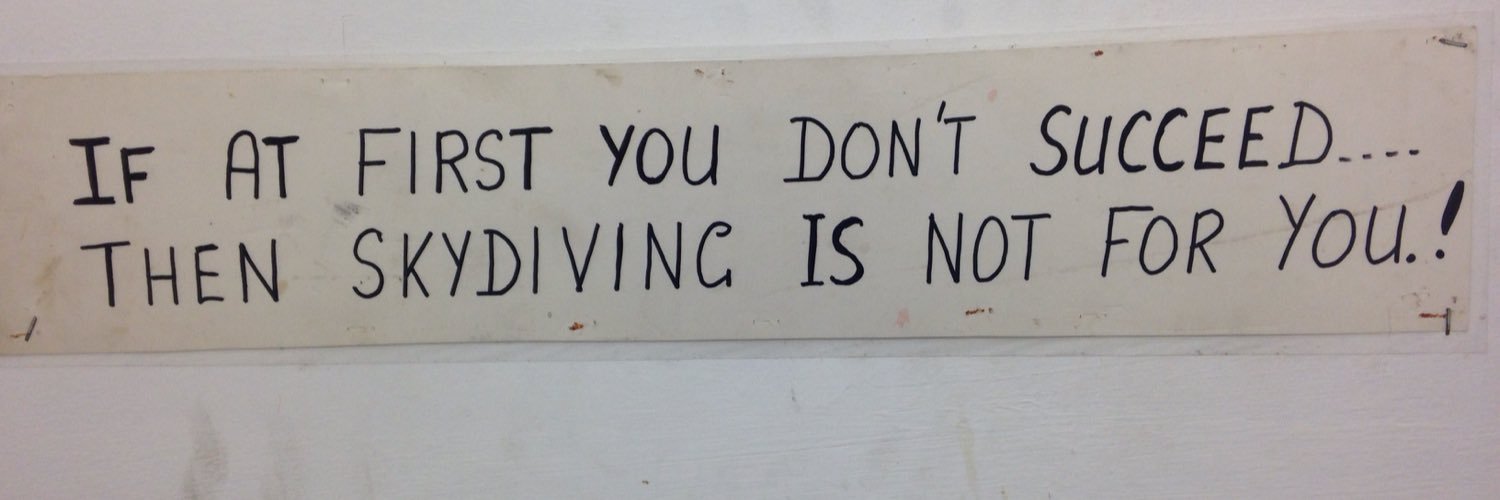 IF AT FIRST YOU DON'T SUCCEED....
THEN SKYDIVING IS NOT FOR YOU.!